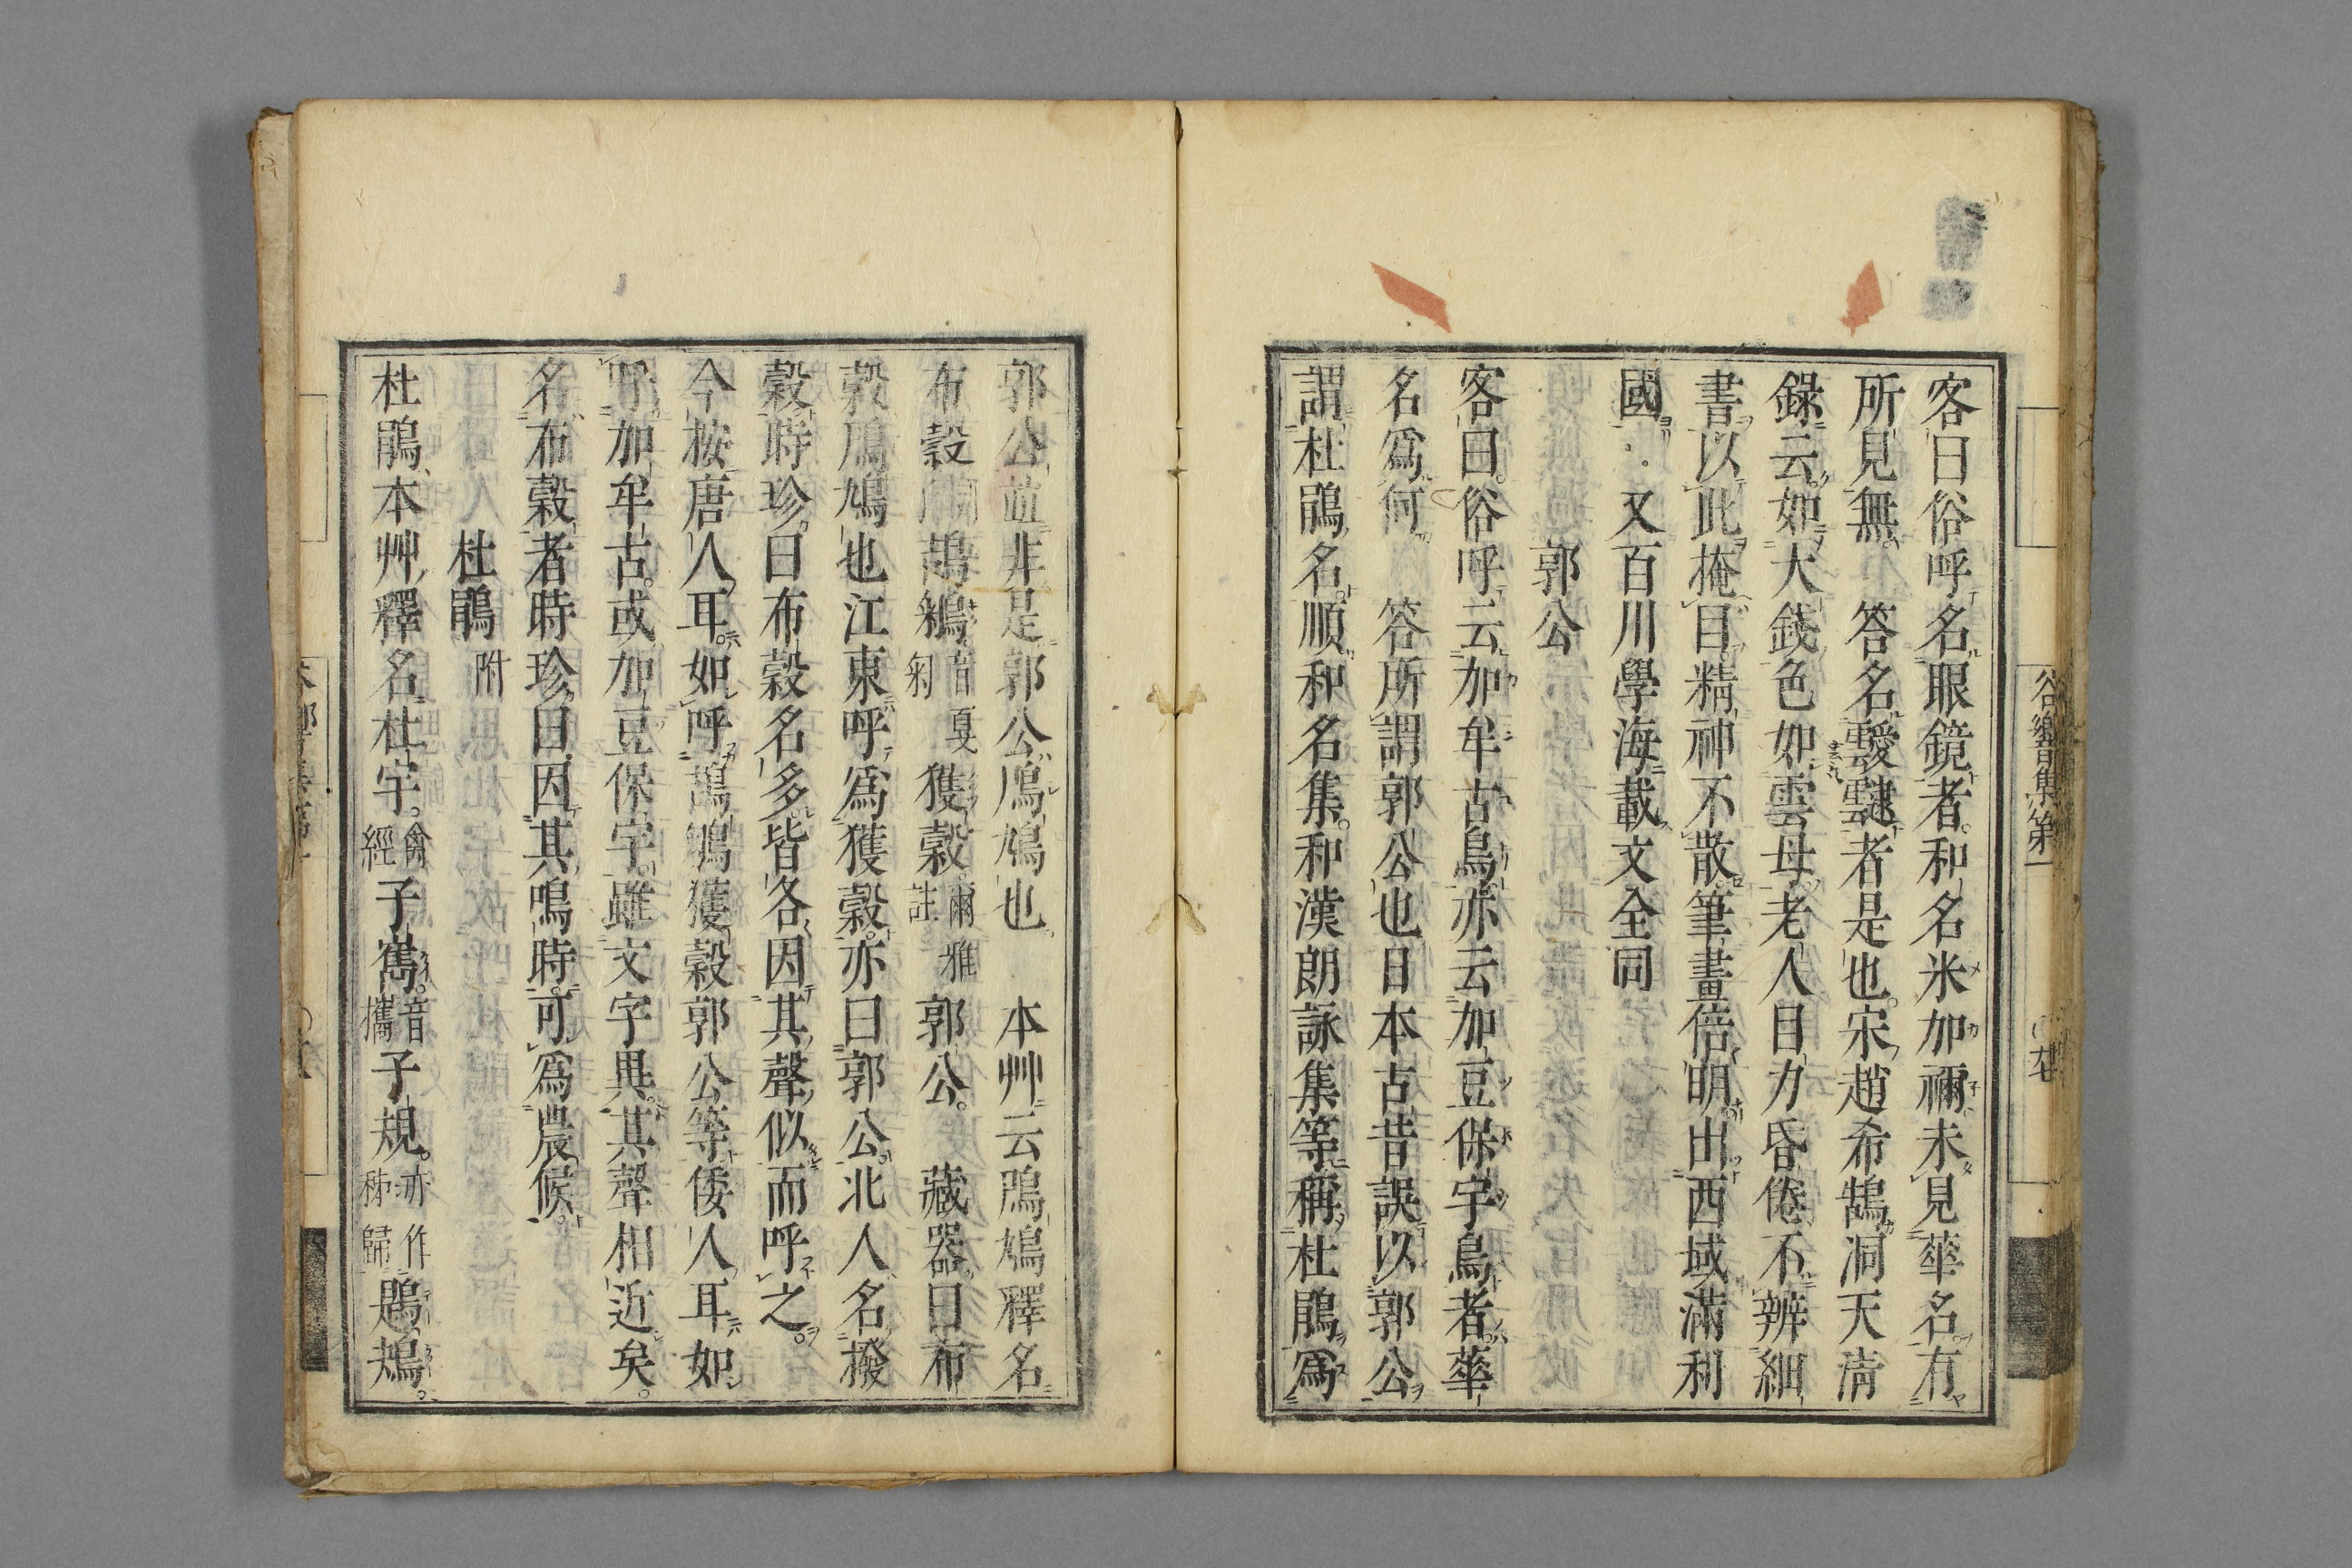 客曰俗呼名眼鏡者和名米加禰未見華名有
所見無 答名靉靆者是也宋趙希鵠洞天清
錄云如大錢色如雲母老人目力昏倦不辨細
書以此掩目精神不散筆畫倍明出西域滿利
國 又百川學海載文全同
郭公
客曰俗呼云加牟古鳥亦云加豆保宇鳥者華
名爲何 答所謂郭公也日本古昔誤以郭公
謂杜鵑名順和名集和漢朗詠集等稱杜鵑爲
谷響集第一
郭公並非是郭公鳲鳩也 本艸云鳲鳩釋名
布穀 鴶鵴音戛匊獲穀爾雅註 郭公 藏器曰布
穀鳲鳩也江東呼爲獲穀亦曰郭公北人名撥
穀時珍曰布穀名多皆各因其聲似而呼之
今按唐人耳如呼鴶鵴獲穀郭公等倭人耳如
呼加牟古或加豆保宇雖文字異其聲相近矣
名布穀者時珍曰因其鳴時可爲農候
杜鵑附
杜鵑本艸釋名杜宇禽經子嶲音攜子規亦作秭歸鶗鴂